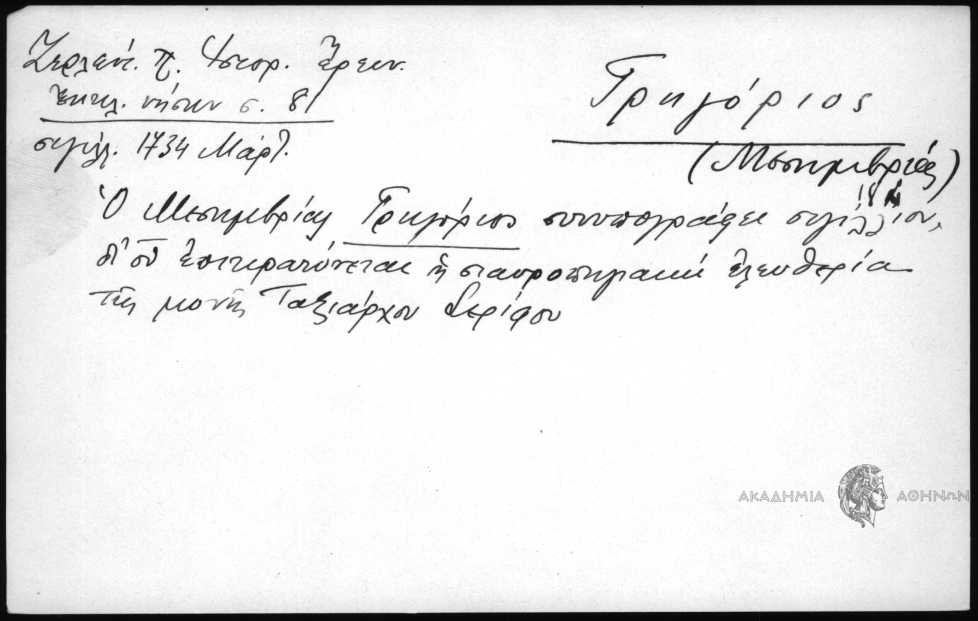 Ζερλέντ. Π. Ἱστορ. Ἔρευν.
Ἐκκλ. νήσων σ. 81
σιγίλ. 1734 Μάρτ.
Γρηγόριος
(Μεσημβρίας)
Ὁ Μεσημβρίας Γρηγόριος συνυπογράφει σιγίλλιον,
δι' οὗ ἐπικρατύνεται ἡ σταυροπηγιακή ἐλευθερία
τῆς μονῆς Ταξιάρχου Σερίφου
ΑΚΑΔΗΜΙΑ ΑΘΗΝΩΝ